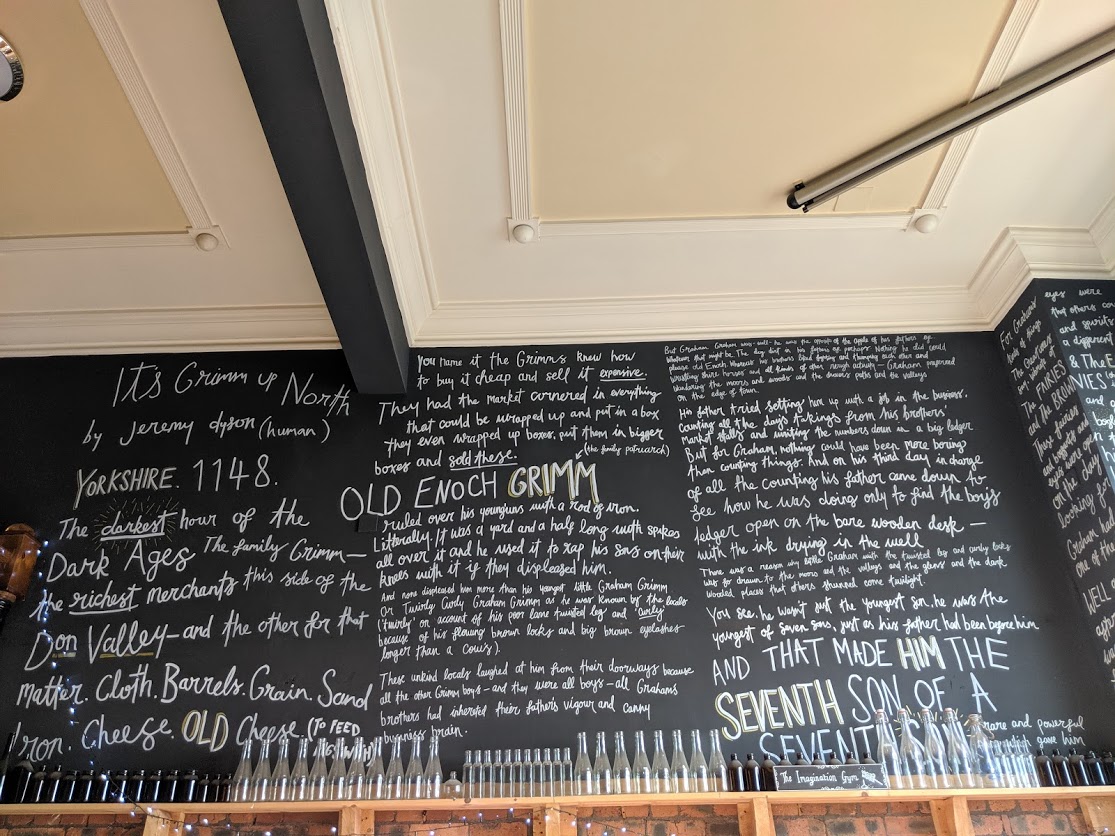 It's Grimm up North
by Jeremy dyson (human)
YORKSHIRE. 1148.
The darkest hour of the
Dark Ages The family Grimm—
the richest merchants this side of the
Don Valley—and the other for that
matter. Cloth. Barrels. Grain. Sand
Iron. Cheese. OLD Cheese. (TO FEED
You name it the Grimms knew how
to buy it cheap and sell it expensive.
They had the market cornered in everything
that could be wrapped up and put in a box
they even wrapped up boxes, put them in bigger
boxes and sold these.
(the family patriarch)
OLD ENOCH GRIMM
ruled over his younguns with a rod of iron.
Literally. It was a yard and a half long with spikes
all over it and he used it to rap his sons on their
knees with it if they displeased him.
And none displeased him more than his youngest little Graham Grimm
Or Twirly Curly Graham Grimm as he was known by the locals
('twirly' on account of his poor lane twisted leg and curly
because of his flowing brown locks and big brown eyelashes—
longer than a cows').
These unkind locals laughed at him from their doorways because
all the other Grimm boys—and they were all boys—all Grahams
brothers had inherited their fathers vigour and canny
business brain.
But Graham Graham was the of the apple of his fathers eye
Whatever that might be. The day but in his fathers eye perhaps? Nothing he did could
please old Enoch Whereas his brothers liked fighting and thumping each other and
wrestling shire horses and all kinds of other rough activity— Graham preferred
Wandering the moors and woods and the downs paths and the valleys
on the edge of town.
His father tried setting him up with a job in the business.
Counting all the day's takings from his brothers'
market stalls and writing the numbers down in a big ledger
But for Graham, nothing could have been more boring
than counting things. And on his third day in charge
of all the counting his father came down to
see how he was doing only to find the boys
ledger open on the bare wooden desk —
with the ink drying in the well
There was a reason why little Graham with the twisted leg and curly locks
was far drawn to the moors and the valleys and the glens and the dark
wooded places that others shunned come twilight.
You see, he wasn't just the youngest son, he was the
youngest of seven sons, just as his father had been before him
AND THAT MADE HIM THE
SEVENTH SON OF A
SEVENTH SON
rare and powerful
gave him
The Imagination Gym
For Graham's eyes were
they others
kinds of things and spirits
a different
The FAIRIES & The
and the BROWNIES
These fairies
eyes were
on the
looking for
Graham
one of the
WELL